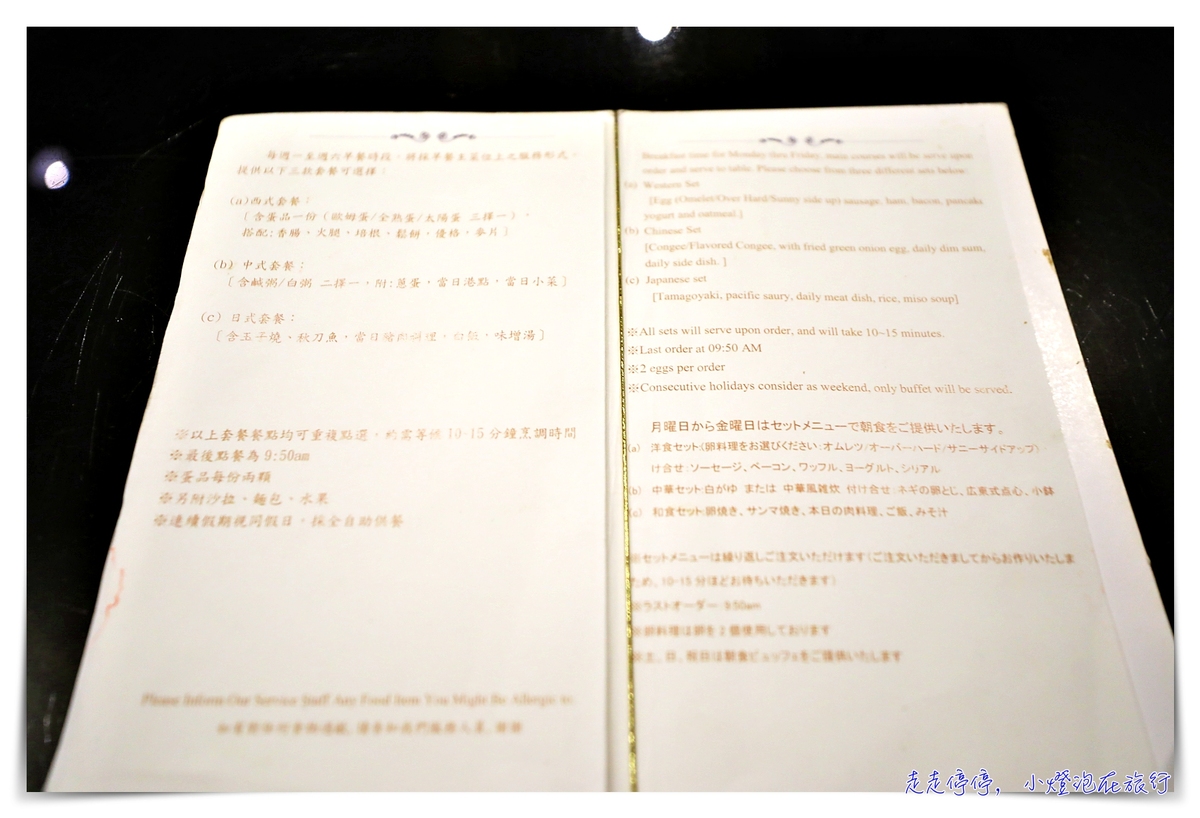 每週一至週六早餐時段，將採早餐主菜位上之服務形式，
提供以下三款套餐可選擇：
(a)西式套餐：
［含蛋品一份（歐姆蛋/全熟蛋/太陽蛋 三擇一），
搭配:香腸、火腿、培根、鬆餅、優格、麥片］
(b) 中式套餐：
［含鹹粥/白粥 二擇一，附:蔥蛋，當日港點，當日小菜］
(c) 日式套餐：
［含玉子燒、秋刀魚，當日豬肉料理，白飯，味增湯］
※以上套餐餐點均可重複點選，約需等候 10-15 分鐘烹調時間
※最後點餐為 9:50am
※蛋品每份兩顆
※另附沙拉、麵包、水果
※連續假期視同假日，採全自助供餐
Please Inform Our Service Staff Any Food Item You Might Be Allergic to.
Breakfast time for Monday thru Friday, main courses will be serve upon
order and serve to table. Please choose from three different sets below:
(a) Western Set
[Egg (Omelet/Over Hard/Sunny side up) sausage, ham, bacon, pancake
yogurt and oatmeal.]
(b) Chinese Set
[Congee/Flavored Congee, with fried green onion egg, daily dim sum,
daily side dish. ]
(c) Japanese set
[Tamagoyaki, pacific saury, daily meat dish, rice, miso soup]
※All sets will serve upon order, and will take 10~15 minutes.
※Last order at 09:50 AM
※2 eggs per order
※Consecutive holidays consider as weekend, only buffet will be served.
月曜日から金曜日はセットメニューで朝食をご提供いたします。
(a) 洋食セット:(卵料理をお選びください:オムレツ/オーバーハード/サニーサイドアップ)
け合せ:ソーセージ、ベーコン、ワッフル、ヨーグルト、シリアル
(b) 中華セット:白がゆ または 中華風雑炊 付け合せ:ネギの卵とじ、広東式点心、小鉢
(c) 和食セット:卵焼き、サンマ焼き、本日の肉料理、ご飯、みそ汁
※セットメニューは繰り返しご注文いただけます(ご注文いただきましてからお作りいたしま
ため、10-15 分ほどお待ちいただきます)
※ラストオーダー:9:50am
※卵料理は卵を 2 個使用しております
※土、日、祝日は朝食ビュッフェをご提供いたします
走走停停，小燈泡在旅行